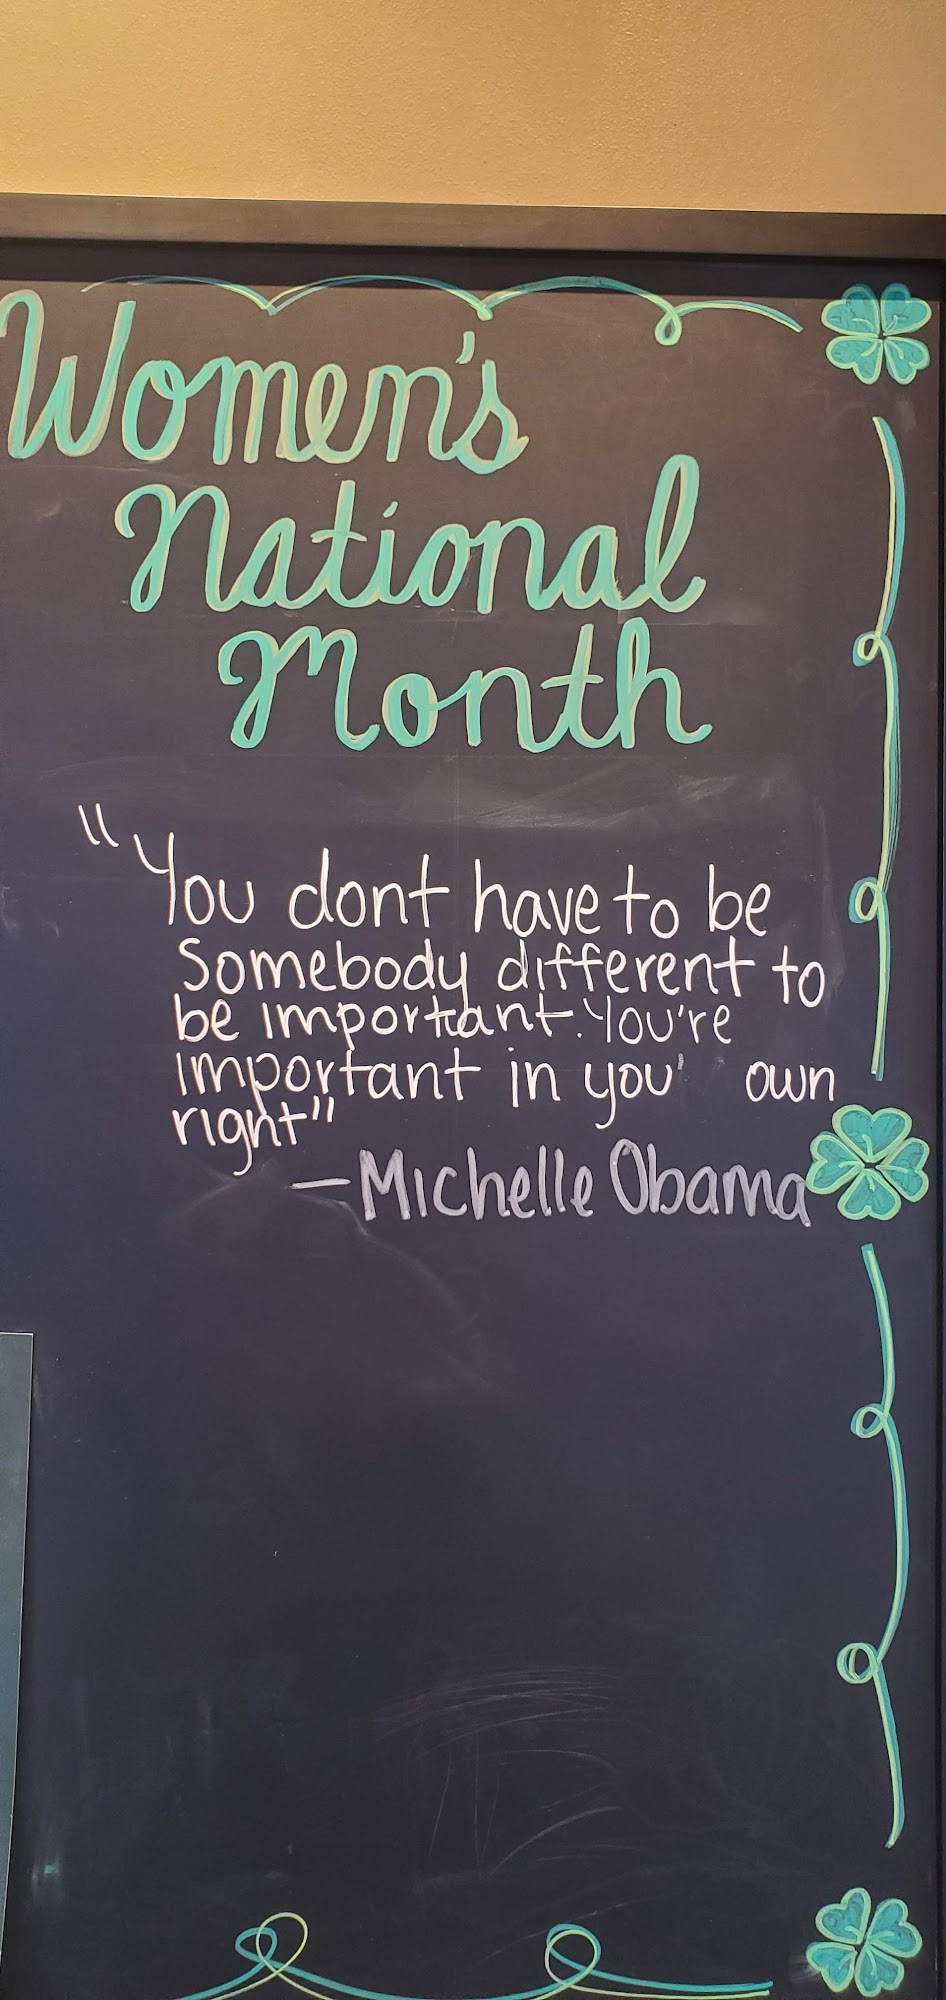 Women's
National
Month
"You dont have to be
Somebody different to
be important. You're
important in you' own
right"
- Michelle Obama